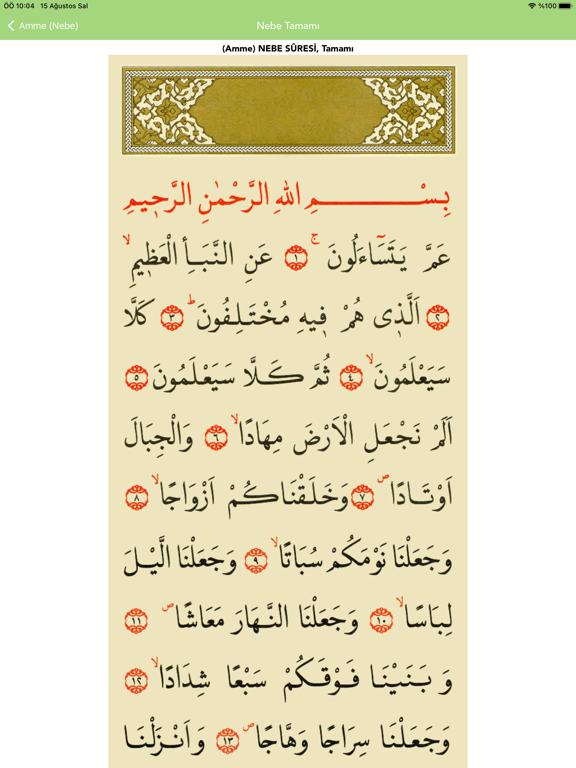 ÖÖ 10:04 15 Ağustos Sal %100
Amme (Nebe) Nebe Tamamı
(Amme) NEBE SÛRESİ, Tamamı
بِسْمِ اللهِ الرَّحْمٰنِ الرَّح۪يمِ
عَمَّ يَتَسَٓاءَلُونَۚ ﴿١﴾ عَنِ النَّبَأِ الْعَظ۪يمِۙ
﴿٢﴾ اَلَّذ۪ى هُمْ ف۪يهِ مُخْتَلِفُونَۜ ﴿٣﴾ كَلَّا
سَيَعْلَمُونَۙ ﴿٤﴾ ثُمَّ كَلَّا سَيَعْلَمُونَ ﴿٥﴾
اَلَمْ نَجْعَلِ الْاَرْضَ مِهَادًاۙ ﴿٦﴾ وَالْجِبَالَ
اَوْتَادًاۖ ﴿٧﴾ وَخَلَقْنَاكُمْ اَزْوَاجًاۙ ﴿٨﴾
وَجَعَلْنَا نَوْمَكُمْ سُبَاتًاۙ ﴿٩﴾ وَجَعَلْنَا الَّيْلَ
لِبَاسًاۙ ﴿١٠﴾ وَجَعَلْنَا النَّهَارَ مَعَاشًاۖ ﴿١١﴾
وَبَنَيْنَا فَوْقَكُمْ سَبْعًا شِدَادًاۙ ﴿١٢﴾
وَجَعَلْنَا سِرَاجًا وَهَّاجًاۖ ﴿١٣﴾ وَاَنْزَلْنَا